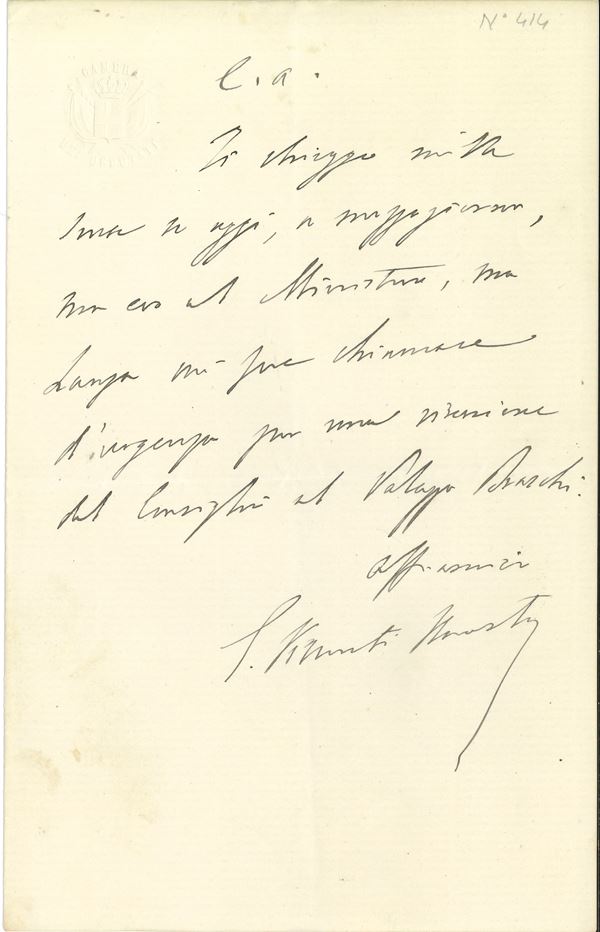 N° 414
CAMERA
DEI DEPUTATI
C. a.
Ti chieggo mille
scuse se oggi, a mezzogiorno,
non ero al Ministero, ma
Lanza mi fece chiamare
d'urgenza per una riunione
del Consiglio al Palazzo Braschi.
Visconti Venosta